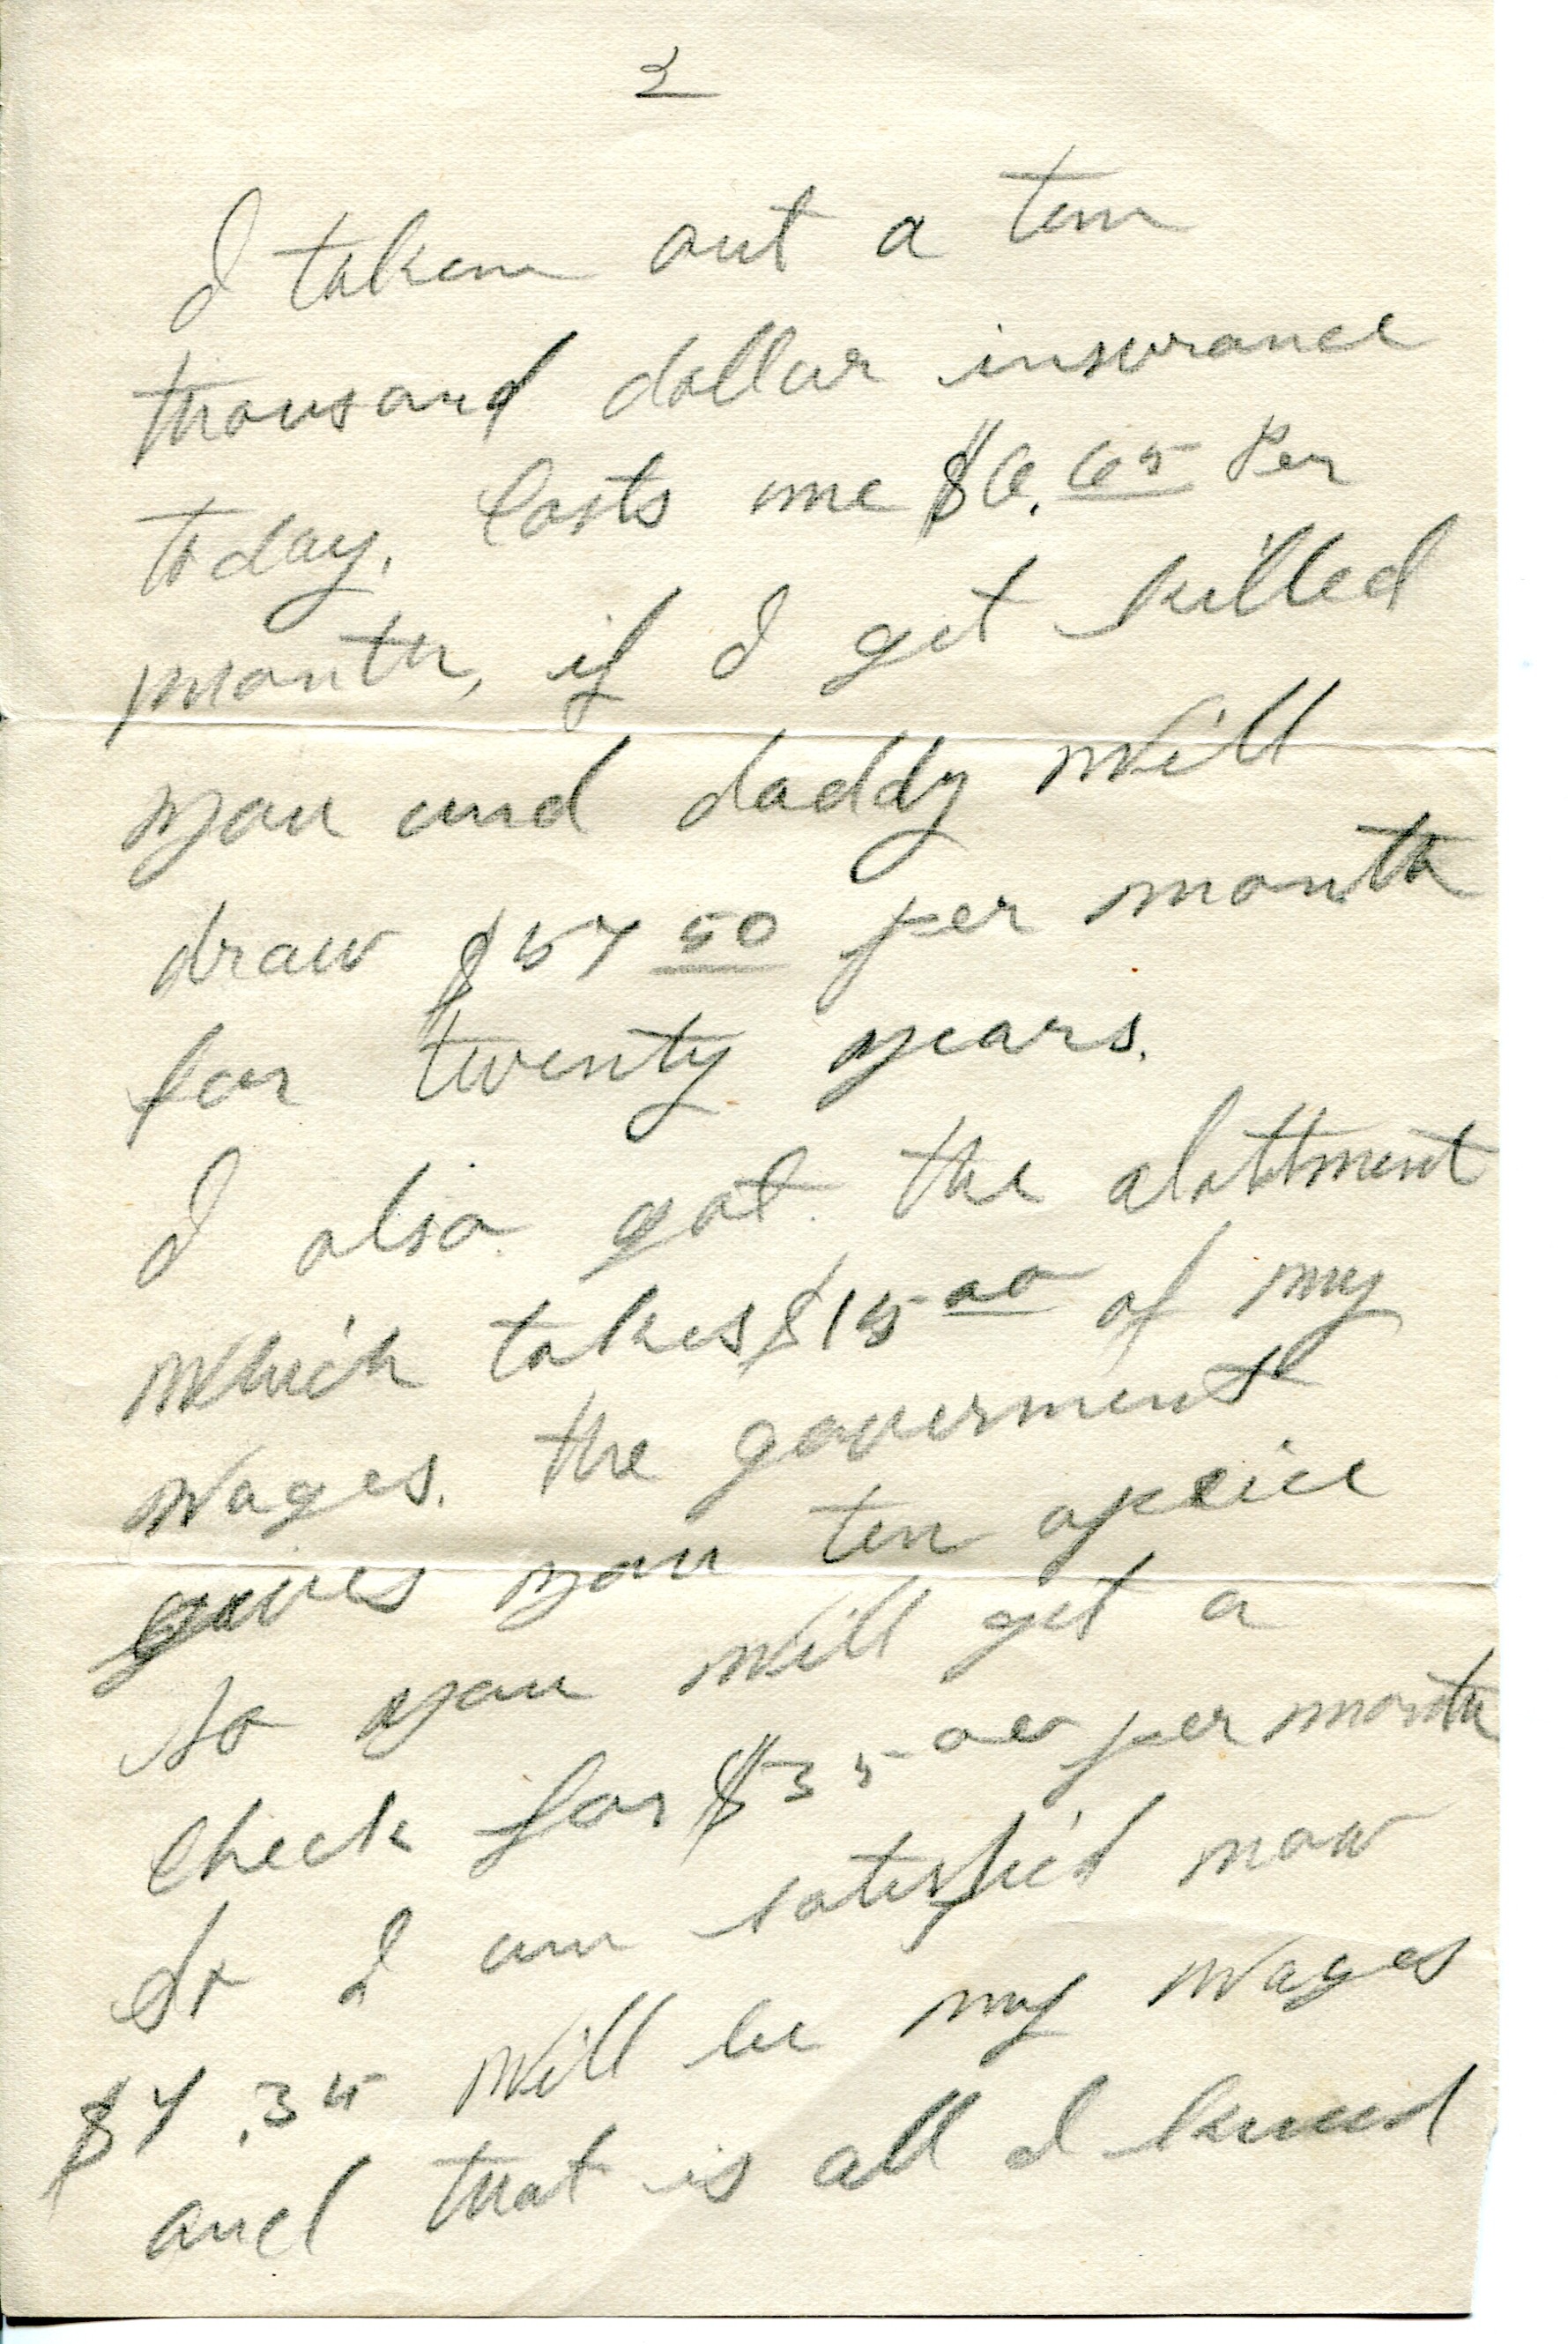 2
I taken out a ten
thousand dollar insurance
today. Costs me $6.65 Per
month, if I get killed
you and daddy will
draw $57 50 per month
for twenty years.
I also got the alottment
which takes $15 00 of my
wages. the goverment
gives you ten apeice
so you will get a
check for $35 00 per month
So I am satisfied now
$7.35 will be my wages
and that is all I kneed